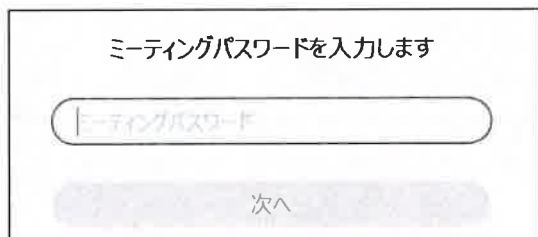 ミーティングパスワードを入力します
ミーティングパスワード
次へ